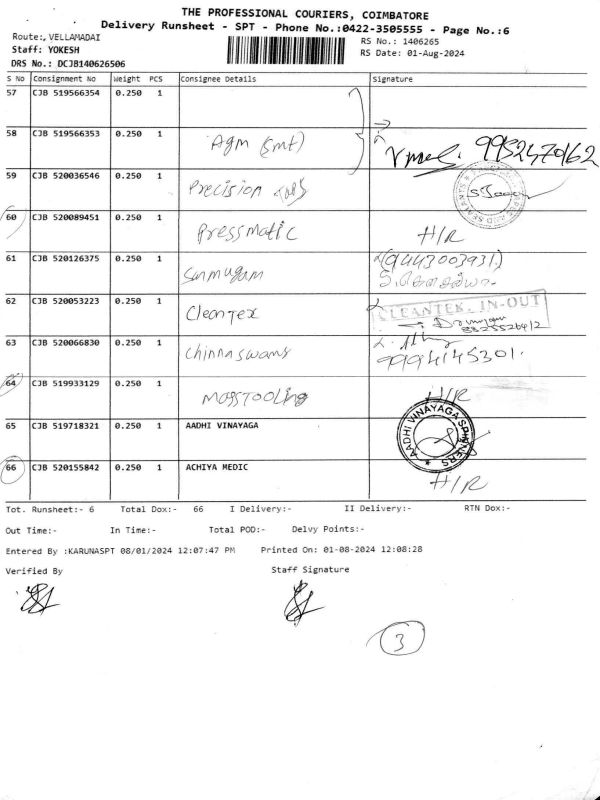 THE PROFESSIONAL COURIERS, COIMBATORE
Delivery Runsheet - SPT - Phone No.:0422-3505555 - Page No.:6
Route:, VELLAMADAI
RS No.: 1406265
Staff: YOKESH
RS Date: 01-Aug-2024
DRS No.: DCJB140626506
S No Consignment No Weight PCS Consignee Details Signature
57 CJB 519566354 0.250 1
58 CJB 519566353 0.250 1 Agm (smt) 9952470162
59 CJB 520036546 0.250 1 Precision Tools
60 CJB 520089451 0.250 1 Pressmatic H/R
61 CJB 520126375 0.250 1 Sanmugam (9443003931.)
62 CJB 520053223 0.250 1 Cleantex CLEANTEK, IN-OUT
63 CJB 520066830 0.250 1 Chinnaswamy 9994145301.
64 CJB 519933129 0.250 1 Magtooling H/R
65 CJB 519718321 0.250 1 AADHI VINAYAGA AADHI VINAYAGA SPINNERS
66 CJB 520155842 0.250 1 ACHIYA MEDIC H/R
Tot. Runsheet:- 6 Total Dox:- 66 I Delivery:- II Delivery:- RTN Dox:-
Out Time:- In Time:- Total POD:- Delvy Points:-
Entered By :KARUNASPT 08/01/2024 12:07:47 PM Printed On: 01-08-2024 12:08:28
Verified By Staff Signature
3